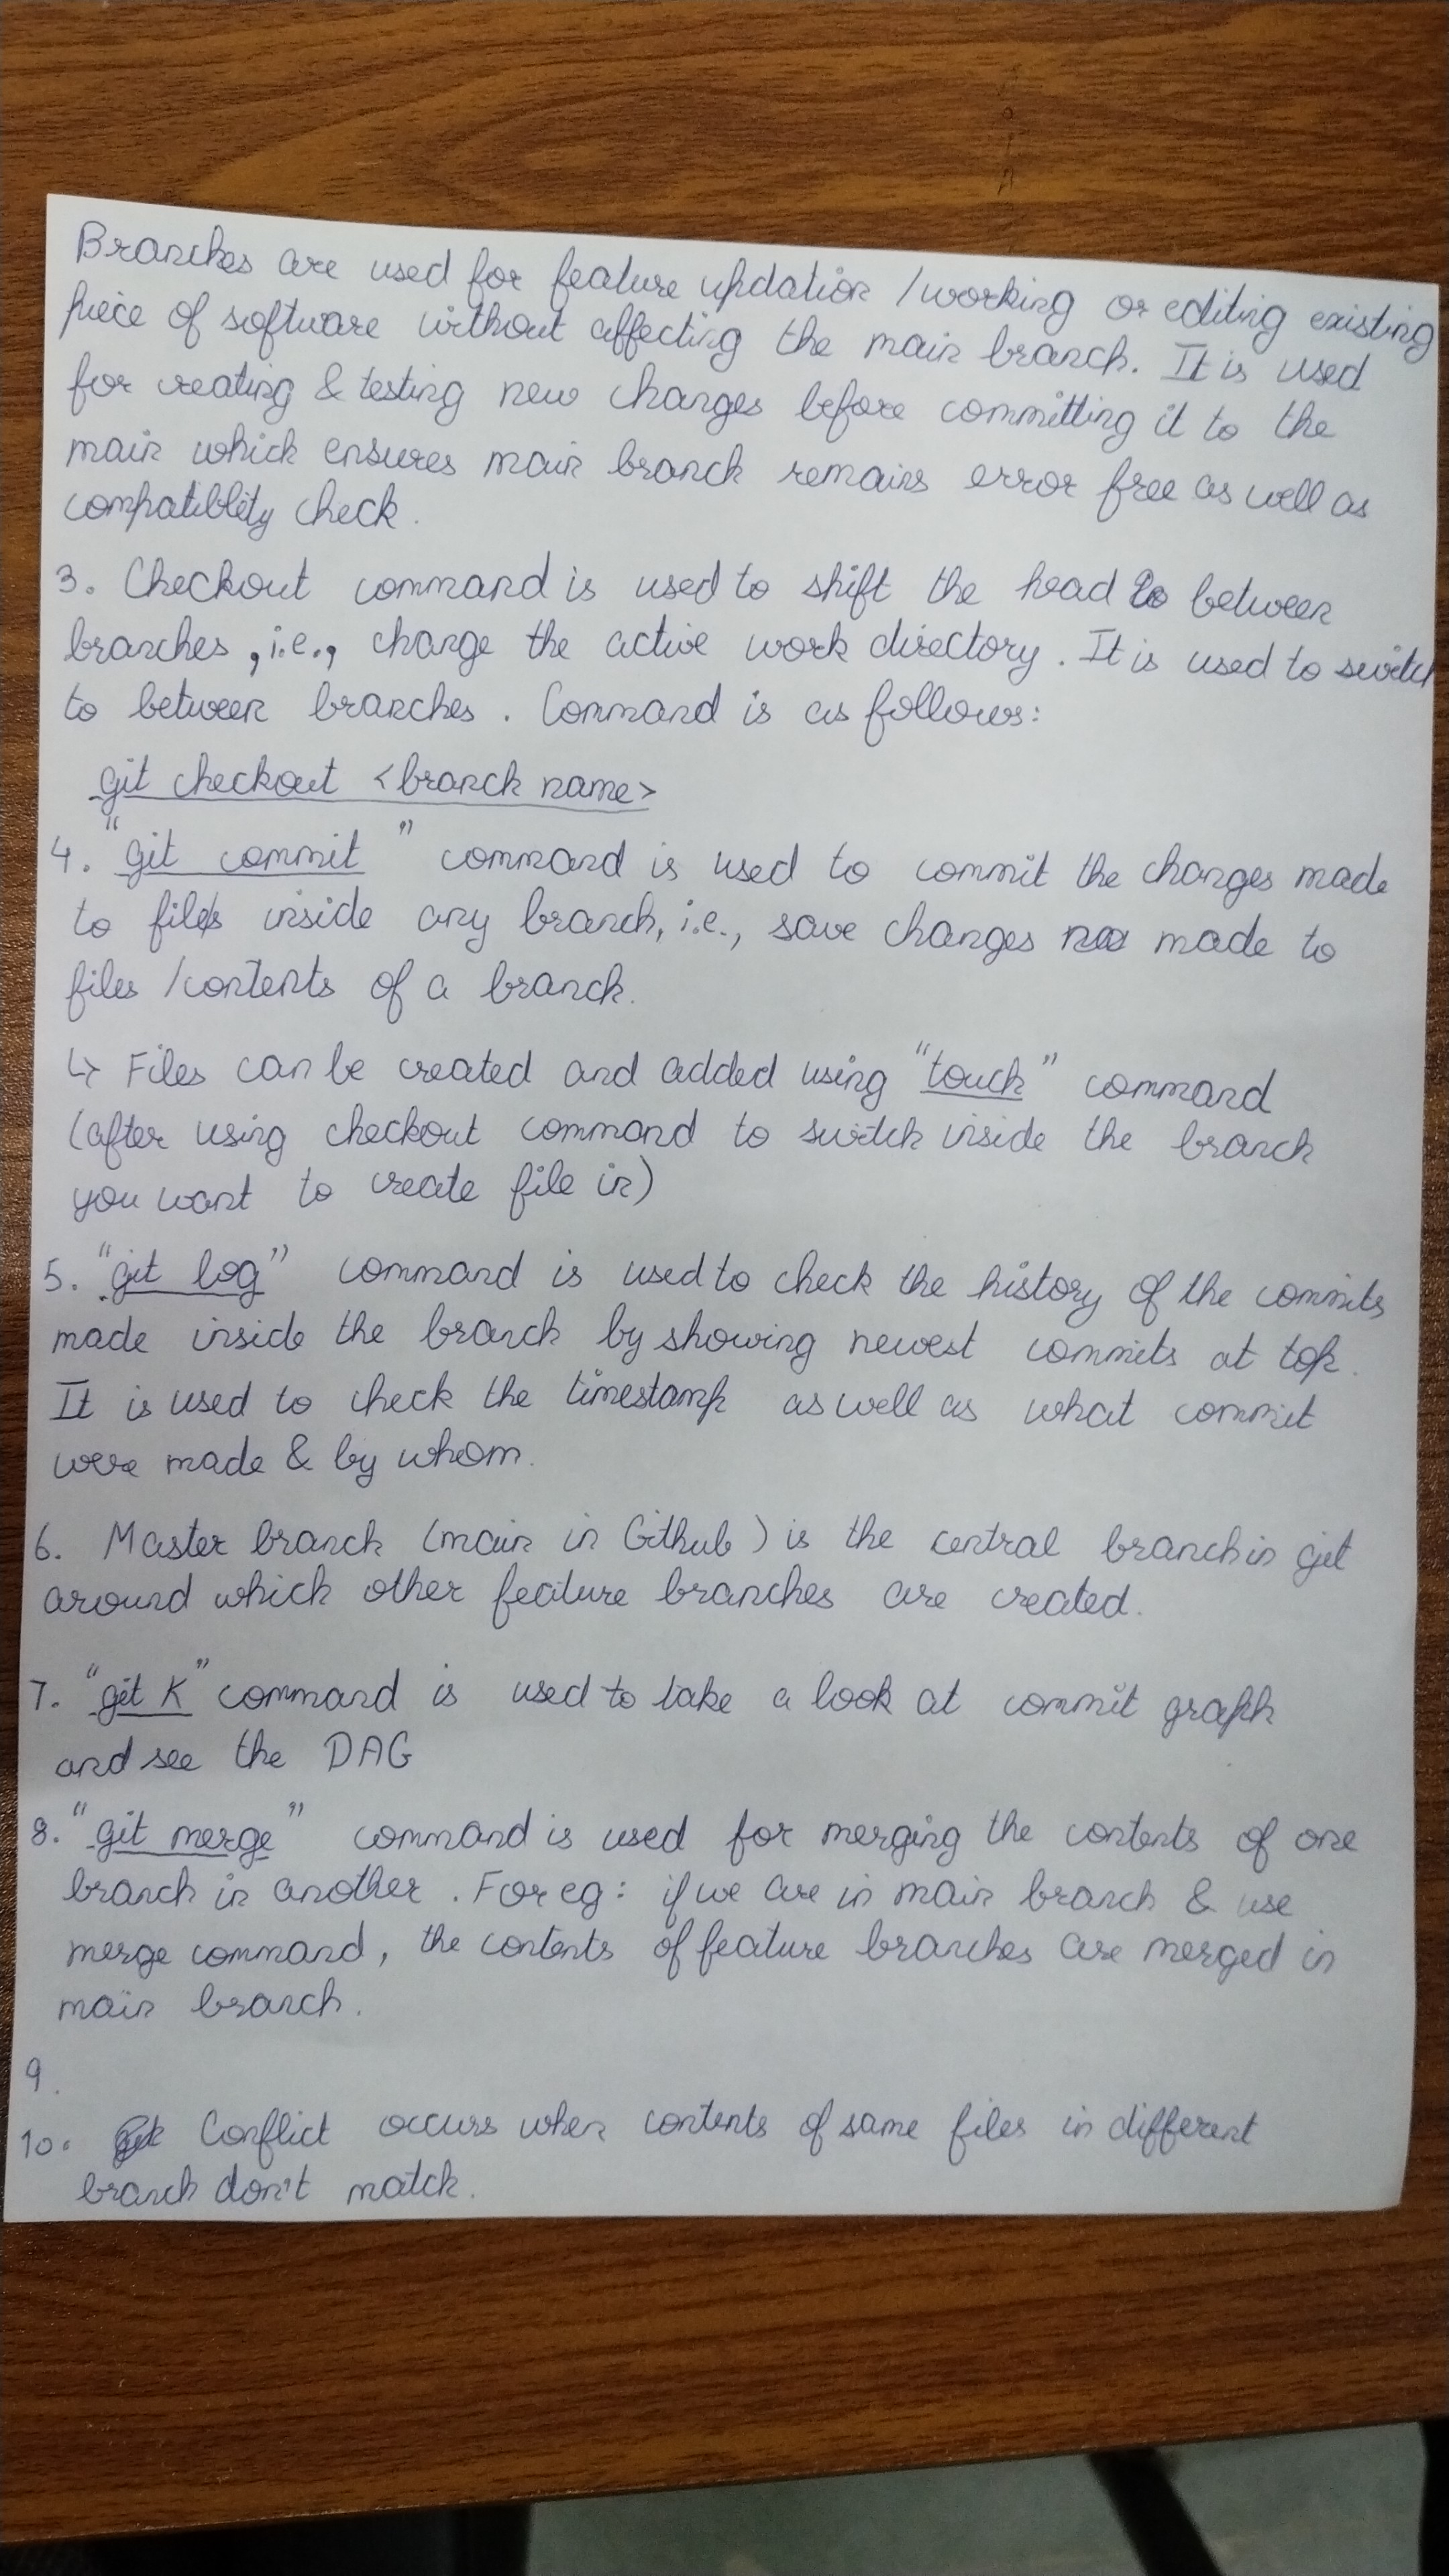 Branches are used for feature updation / working or editing existing
piece of software without affecting the main branch. It is used
for creating & testing new changes before committing it to the
main which ensures main branch remains error free as well as
compatiblity check.
3. Checkout command is used to shift the head to between
branches, i.e., change the active work directory. It is used to switch
to between branches. Command is as follows:
git checkout <branch name>
4. "git commit" command is used to commit the changes made
to files inside any branch, i.e., save changes made to
files / contents of a branch.
↳ Files can be created and added using "touch" command
(after using checkout command to switch inside the branch
you want to create file in)
5. "git log" command is used to check the history of the commits
made inside the branch by showing newest commits at top.
It is used to check the timestamp as well as what commit
were made & by whom.
6. Master branch (main in Github) is the central branch in git
around which other feature branches are created.
7. "git K" command is used to take a look at commit graph
and see the DAG
8. "git merge" command is used for merging the contents of one
branch in another. For eg: if we are in main branch & use
merge command, the contents of feature branches are merged in
main branch.
9.
10. Conflict occurs when contents of same files in different
branch don't match.